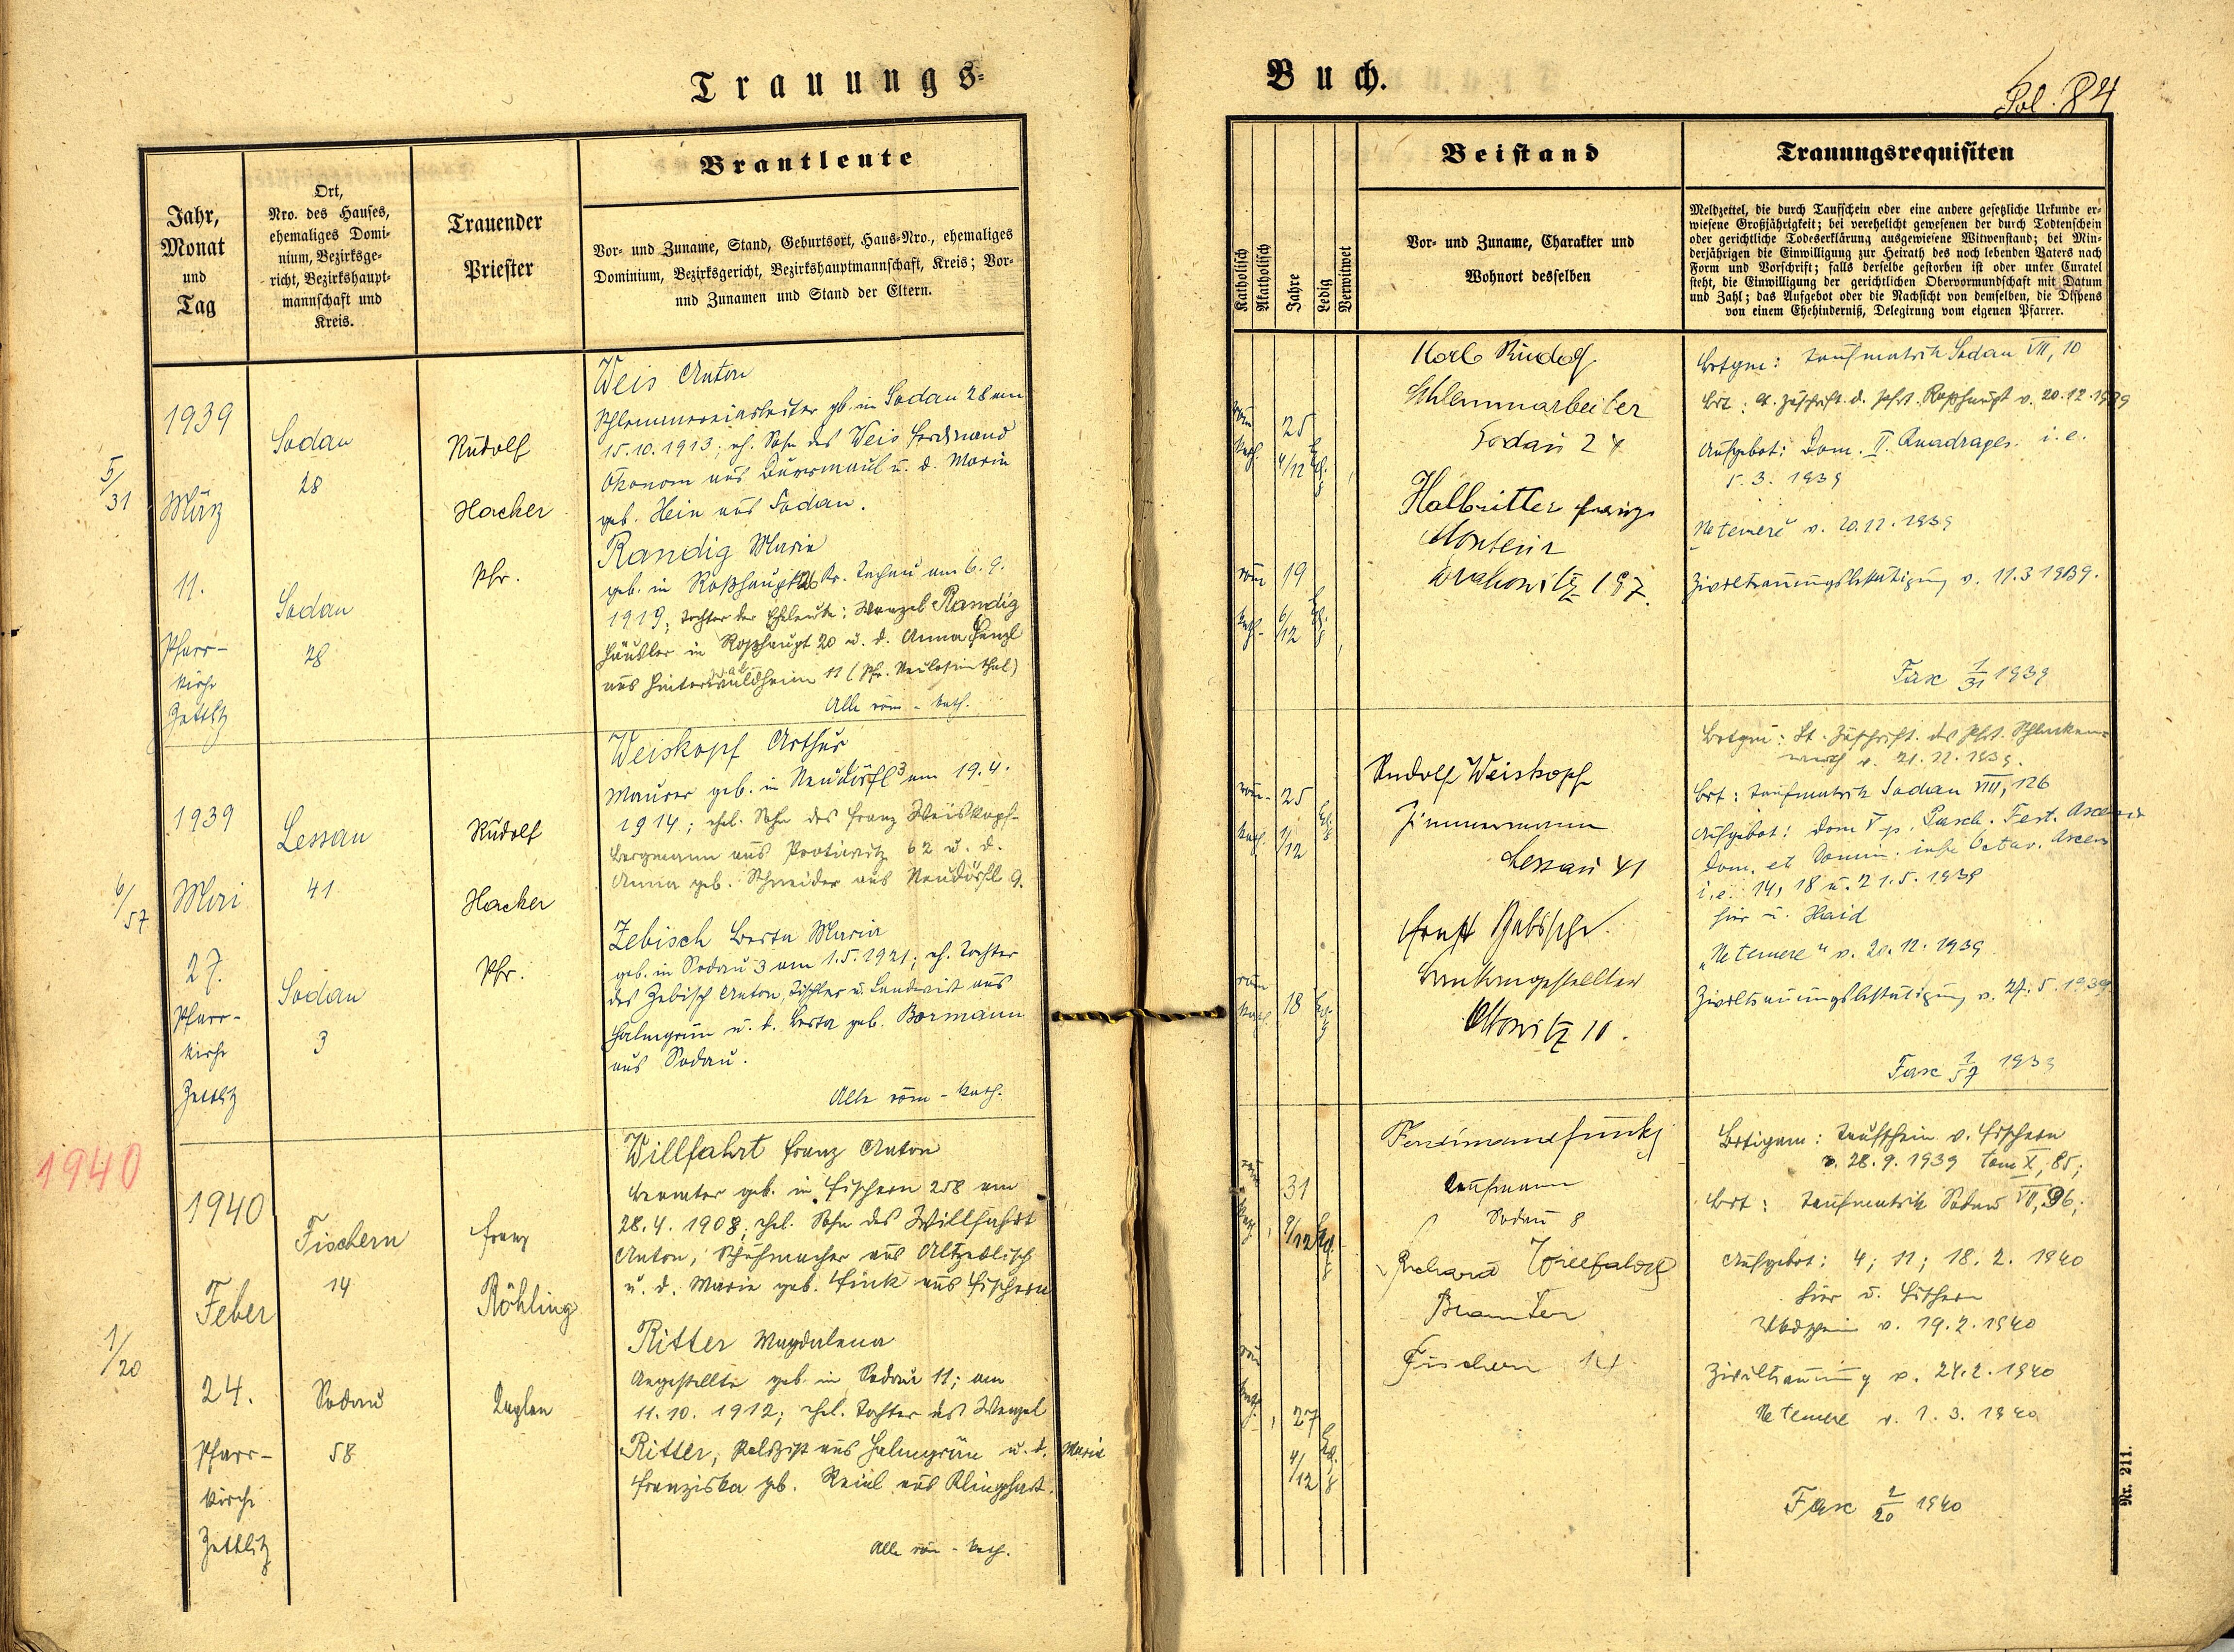 Trauungs-
Buch.
Fol. 84
Jahr,
Monat
und
Tag
Ort,
Nro. des Hauses,
ehemaliges Domi-
nium, Bezirksge-
richt, Bezirkshaupt-
mannschaft und
Kreis.
Trauender
Priester
Brautleute
Vor- und Zuname, Stand, Geburtsort, Haus-Nro., ehemaliges
Dominium, Bezirksgericht, Bezirkshauptmannschaft, Kreis; Vor-
und Zunamen und Stand der Eltern.
Katholisch
Akatholisch
Jahre
Ledig
Verwitwet
Beistand
Vor- und Zuname, Charakter und
Wohnort desselben
Trauungsrequisiten
Meldzettel, die durch Taufschein oder eine andere gesetzliche Urkunde er-
wiesene Großjährigkeit; bei verehelicht gewesenen der durch Todtenschein
oder gerichtliche Todeserklärung ausgewiesene Witwenstand; bei Min-
derjährigen die Einwilligung zur Heirath des noch lebenden Vaters nach
Form und Vorschrift; falls derselbe gestorben ist oder unter Curatel
steht, die Einwilligung der gerichtlichen Obervormundschaft mit Datum
und Zahl; das Aufgebot oder die Nachsicht von demselben, die Dispens
von einem Ehehinderniß, Delegirung vom eigenen Pfarrer.
5/31
1939
März
11.
Pfarr-
kirche
Zettlitz
Sodau
28
Sodau
28
Rudolf
Hacker
Pfr.
Weis Anton
geb. in Sodau 28 am
15.10.1913; eh. Sohn des Weis Ferdinand
Ökonom aus Dürrmaul u. d. Maria
geb. Hein aus Sodau.
Randig Maria
geb. in Roßhaupt 26 Kr. Tachau am 6.9.
1919; Tochter der Eheleute: Wenzel Randig
Häusler in Roßhaupt 20 u. d. Anna Henzl
aus 11 (Pf. Neulosimthal)
Alle röm-kath.
röm
kath.
25
4/12
röm
kath.
19
6/12
Karl Rudolf
Schlemmarbeiter
Sodau 24
Halbritter Franz
Monteur
197.
Brtgm: Taufmatrik Sodau VII, 10
Brt: Zuschrift d. Pfrt. Roßhaupt v. 20.12.1939
Aufgebot: Dom. II. Quadrages. i.e.
5.3.1939
Ne temere v. 20.12.1939
Ziviltrauungsbestätigung v. 11.3.1939.
Fasc 1/31 1939
6/57
1939
Mai
27.
Pfarr-
kirche
Zettlitz
Lessau
41
Sodau
3
Rudolf
Hacker
Pfr.
Weiskopf Arthur
Maurer geb. in Neudörfl 3 am 19.4.
1914; ehel. Sohn des Franz Weiskopf
Bergmann aus Potiwitz 62 u. d.
Anna geb. Schneider aus Neudörfl 9.
Zebisch Berta Maria
geb. in Sodau 3 am 1.5.1921; eh. Tochter
des Zebisch Anton, Tischler u. Landwirt aus
Halmgrün u. d. Berta geb. Bormann
aus Sodau.
Alle röm-kath.
röm-
kath.
25
1/12
röm
kath.
18
Rudolf Weiskopf
Zimmermann
Lessau 41
Ernst
Bankangestellter
Ottowitz 10.
Brtgm: Zuschrift des Pfrt. Schlacken-
werth v. 21.12.1939.
Brt: Taufmatrik Sodau VIII, 126
Aufgebot: Dom V p. Pasch. Fest. Ascens
Dom. et Domin. infr Octav. Ascens
i.e. 14, 18 u. 21.5.1939
hier u. Haid
"Ne temere" v. 20.12.1939
Ziviltrauungsbestätigung v. 27.5.1939
Fasc 1/57 1939
1940
1/20
1940
Feber
24.
Pfarr-
kirche
Zettlitz
Fischern
14
Sodau
58
Franz
Röhling
Kaplan
Willfahrt Franz Anton
Beamter geb. in Fischern 258 am
28.4.1908; ehel. Sohn des Willfahrt
Anton, Schuhmacher aus Altzedlisch
u. d. Marie geb. Fink aus Fischern
Ritter Magdalena
Angestellte geb. in Sodau 11; am
11.10.1912; ehel. Tochter des Wenzel
Ritter, Polizist aus Halmgrün u. d. Marie
Franziska geb. Reinl aus Klinghart.
Alle röm-kath.
röm
kath.
31
9/12
röm
kath.
27
4/12
Ferdinand Funk
Kaufmann
Sodau 8
Richard Willfahrt
Beamter
Fischern 14
Brtigam: Taufschein v. Fischern
v. 28.9.1939 tom X, 85;
Brt: Taufmatrik Sodau VII, 96;
Aufgebot: 4; 11; 18.2.1940
hier u. Fischern
v. 19.2.1940
Ziviltrauung v. 24.2.1940
Ne temere v. 1.3.1940
Fasc 1/20 1940
Nr. 211.